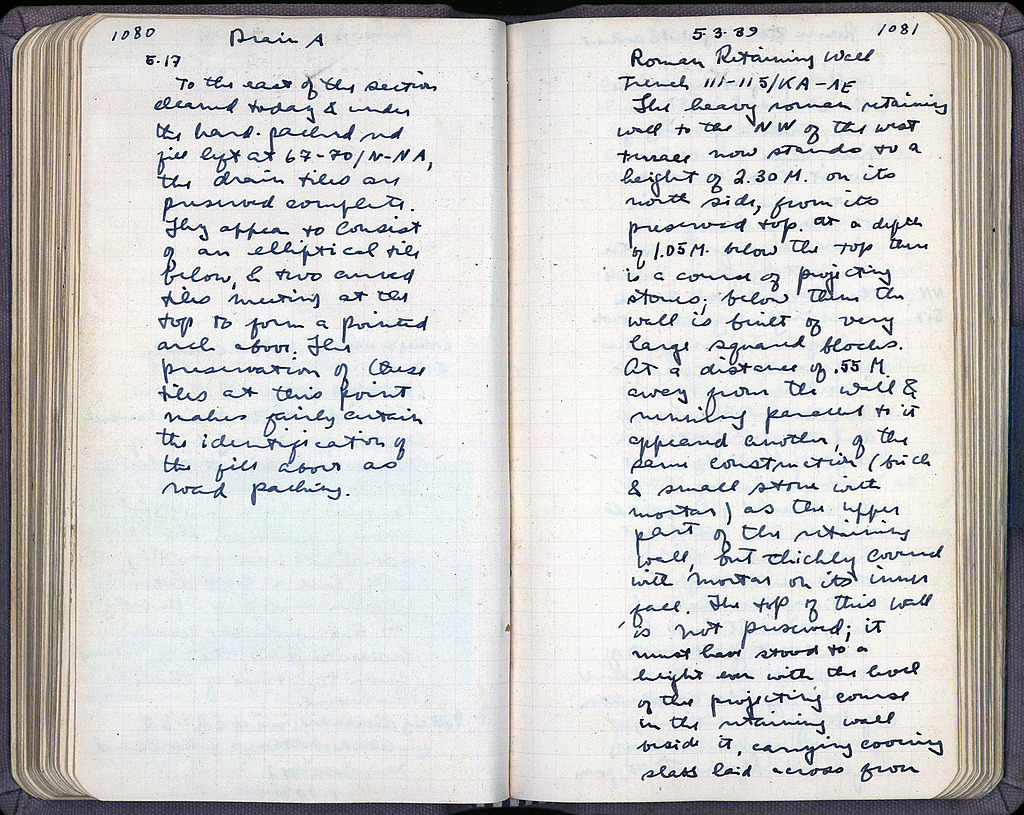 1080
Drain A
5.17
To the east of the section
cleared today & under
the hard-packed rd
fill left at 67-70/N-NA,
the drain tiles are
preserved complete.
They appear to consist
of an elliptical tile
below, & two curved
tiles meeting at the
top to form a pointed
arch above. The
preservation of these
tiles at this point
makes fairly certain
the identification of
the fill above as
road packing.
5.3.39
1081
Roman Retaining Wall
Trench 111-115/KA-ΛE
The heavy roman retaining
wall to the NW of the west
terrace now stands to a
height of 2.30 M. on its
north side, from its
preserved top. At a depth
of 1.05 M. below the top there
is a course of projecting
stones; below them the
wall is built of very
large squared blocks.
At a distance of .55 M
away from the wall &
running parallel to it
appeared another, of the
same construction (brick
& small stone with
mortar) as the upper
part of the retaining
wall, but thickly covered
with mortar on its inner
face. The top of this wall
is not preserved; it
must have stood to a
height even with the level
of the projecting course
in the retaining wall
beside it, carrying covering
slabs laid across from